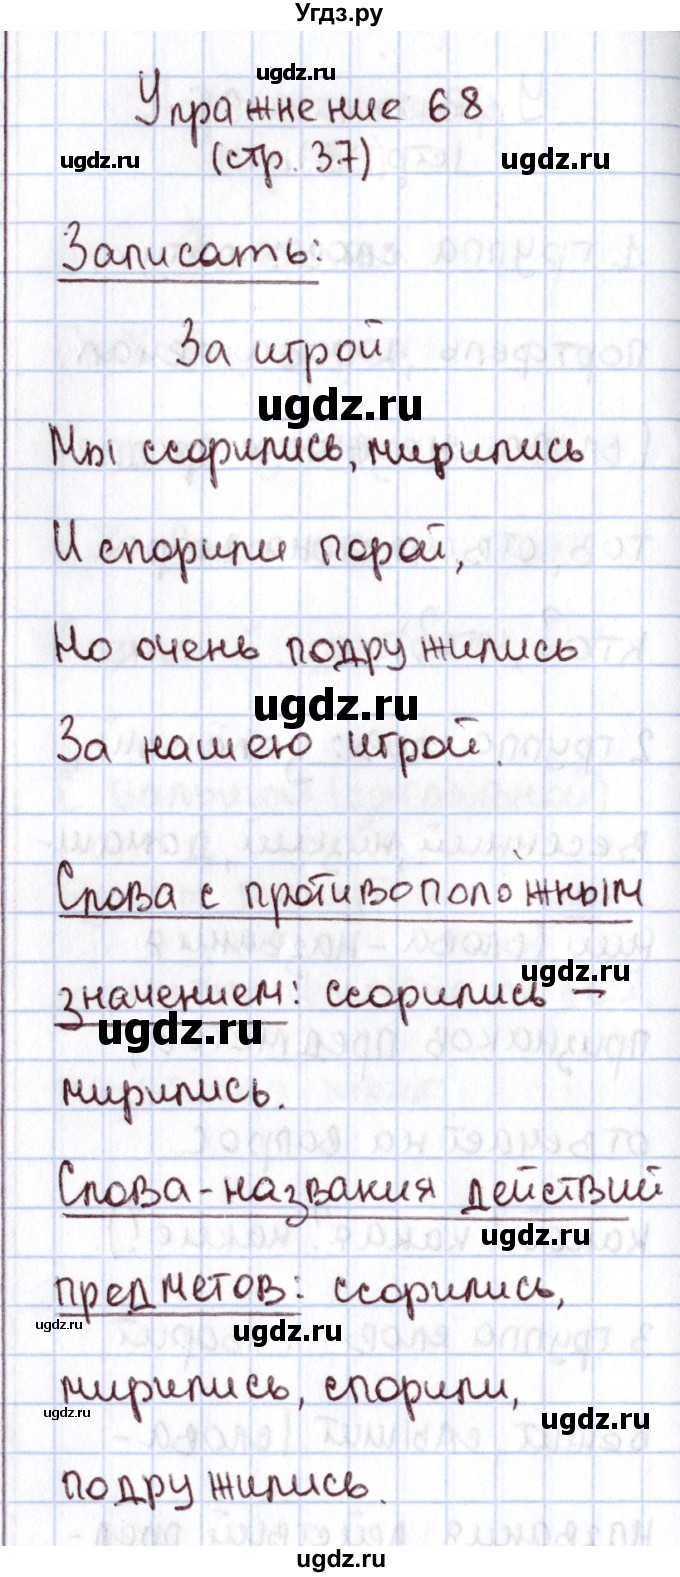 Угдз.ру
ugdz.ru
Упражнение 68
ugdz.ru (стр. 37) ugdz.ru
Записать:
За игрой
ugdz.ru
Мы ссорились, мирились
И спорили порой,
Но очень подружились
ugdz.ru
За нашею игрой.
Слова с противоположным
ugdz.ru
значением: ссорились –
ugdz.ru
мирились.
Слова-названия действий
ugdz.ru
предметов: ссорились,
ugdz.ru ugdz.ru
мирились, спорили,
ugdz.ru ugdz.ru
подружились.
ugdz.ru